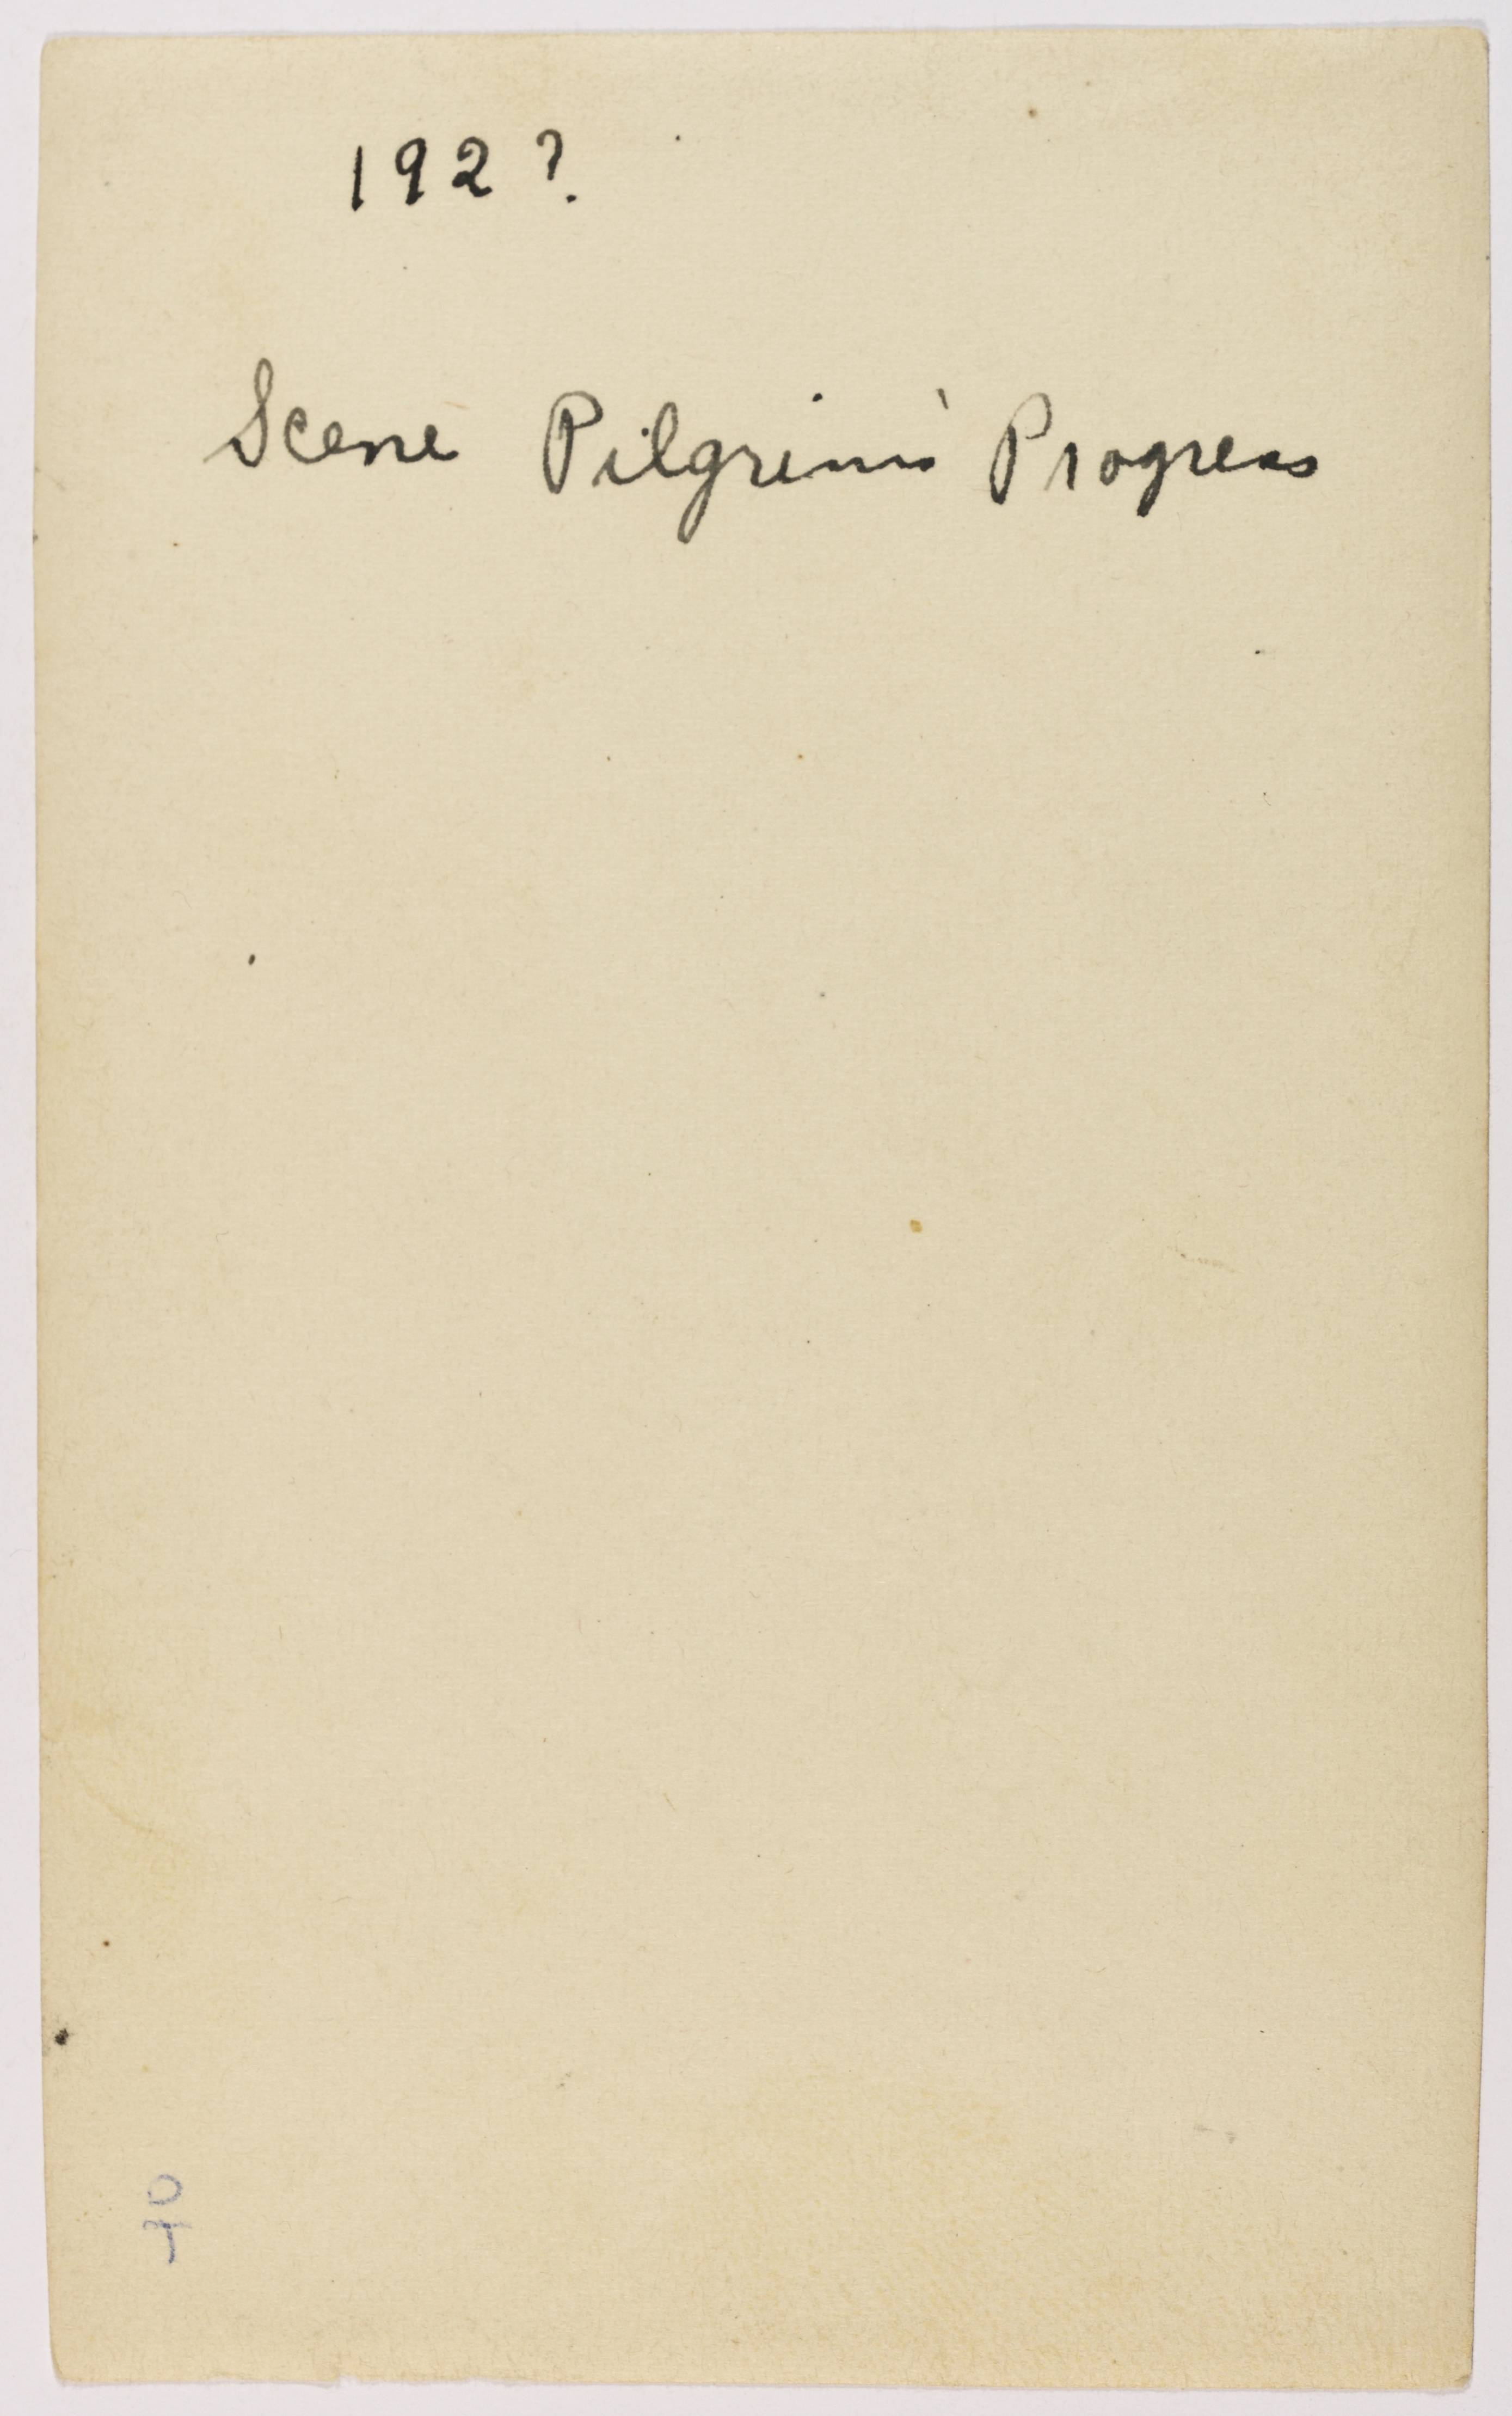 192?
Scene Pilgrim's Progress